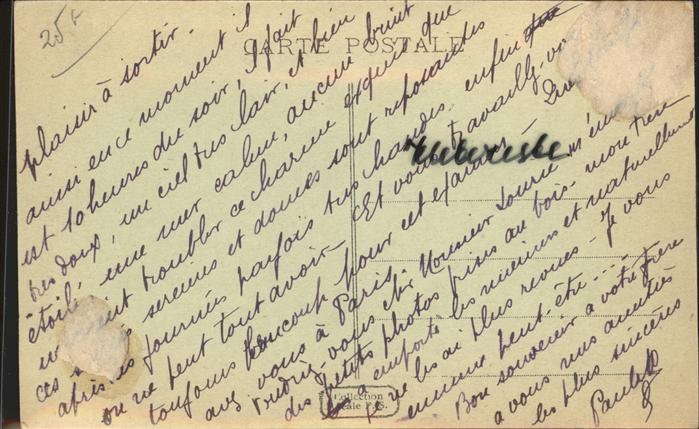 25 f
CARTE POSTALE
plaisir à sortir.
ainsi en ce moment il
est 10 heures du soir, il fait
très doux, un ciel très clair, et bien
étoilé, une mer calme, aucun bruit
troubler ce charme exquis que
ces sereines et douces sont reposantes
après les journées parfois très chaudes, enfin
on ne peut tout avoir. Et vous travaillez-vo
toujours beaucoup pour cet examen
avez vous à Paris.
vous cher Monsieur
des petits photos prises au bois. mon frère
a emporté les miennes et naturellement
je ne les ai plus revues. Je vous
ennuie peut-être....
Bon souvenir à votre frère
à vous mes amitiés
les plus sincères
Paule
Collection
P.S.